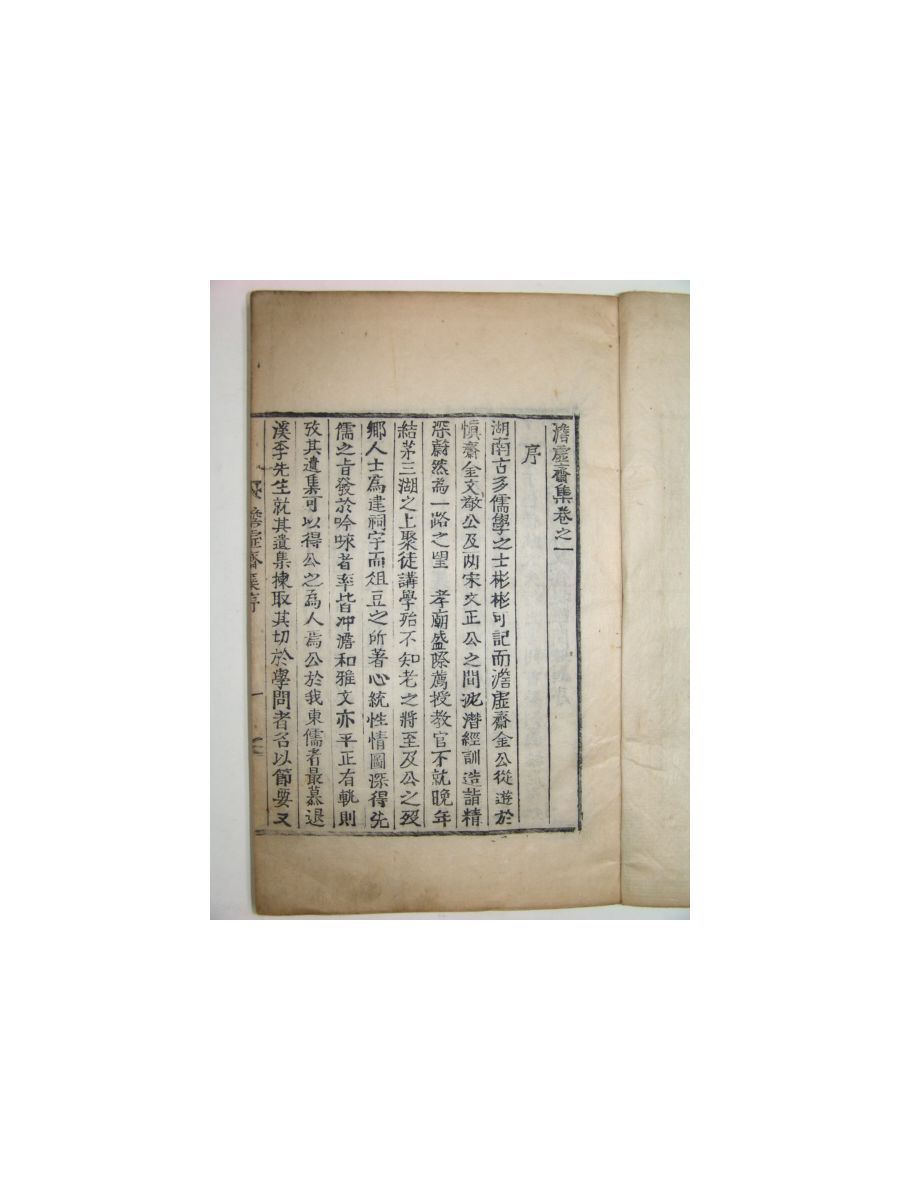 澹虛齋集卷之一
序
湖南古多儒學之士彬彬可記而澹虛齋金公從遊於
愼齋金文敬公及两宋文正公之間沈潛經訓造詣精
深蔚然為一路之望　孝廟盛際薦授教官不就晚年
結茅三湖之上聚徒講學殆不知老之將至及公之歿
鄉人士為建祠宇而俎豆之所著心統性情圖深得先
儒之旨發於吟咏者率皆冲澹和雅文亦平正有軌則
攷其遺集可以得公之為人焉公於我東儒者最慕退
溪李先生就其遺集揀取其切於學問者名以節要又
澹虛齋集序
一